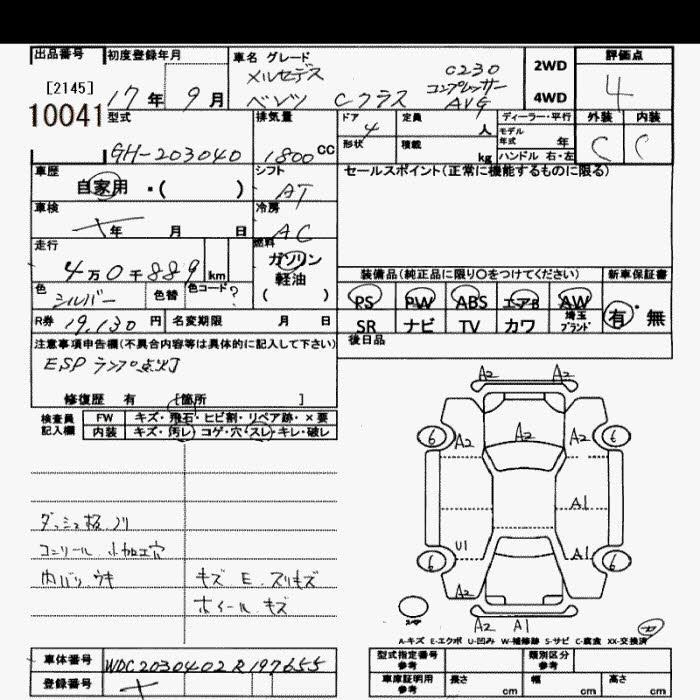 出品番号 初度登録年月 車名 グレード 評価点
[2145] 10041 17年 9月 メルセデス ベンツ Cクラス C230 コンプレッサー AVG 2WD 4WD 4
型式 排気量 ドア 定員 ディーラー・平行 外装 内装
GH-203040 1800 CC 4 人 モデル年式 年 C C
形状 積載 kg ハンドル 右・左
車歴 シフト セールスポイント(正常に機能するものに限る)
自家用 ・( ) AT
車検 冷房
年 月 日 AC
走行 燃料
4万0千889 km ガソリン 軽油 ( )
装備品(純正品に限り○をつけてください) 新車保証書
色 シルバー 色替 色コード ?
PS PW ABS エアB AW 有・無
R券 19,130 円 名変期限 月 日
SR ナビ TV カワ 埼玉ブランド
注意事項申告欄(不具合内容等は具体的に記入して下さい) 後日品
ESP ランプ点灯
修復歴 有 [箇所 ]
検査員記入欄 FW キズ・飛石・ヒビ割・リペア跡・×要
内装 キズ・汚レ・コゲ・穴・スレ・キレ・破レ
A2 A2
6 A2 A2 A2 6
A1
U1 A1
6 6
A2
A2 A1
ダッシュ板 ノリ
コンソール 小加工穴
内バリ ウキ キズ E スリキズ
ホイール キズ
スペア
A-キズ E-エクボ U-凹み W-補修跡 S-サビ C-腐食 XX-交換済
車体番号 WDC2030402R197655
登録番号
型式指定番号 参考 類別区分 参考
車庫証明用 参考 長さ cm 幅 cm 高さ cm